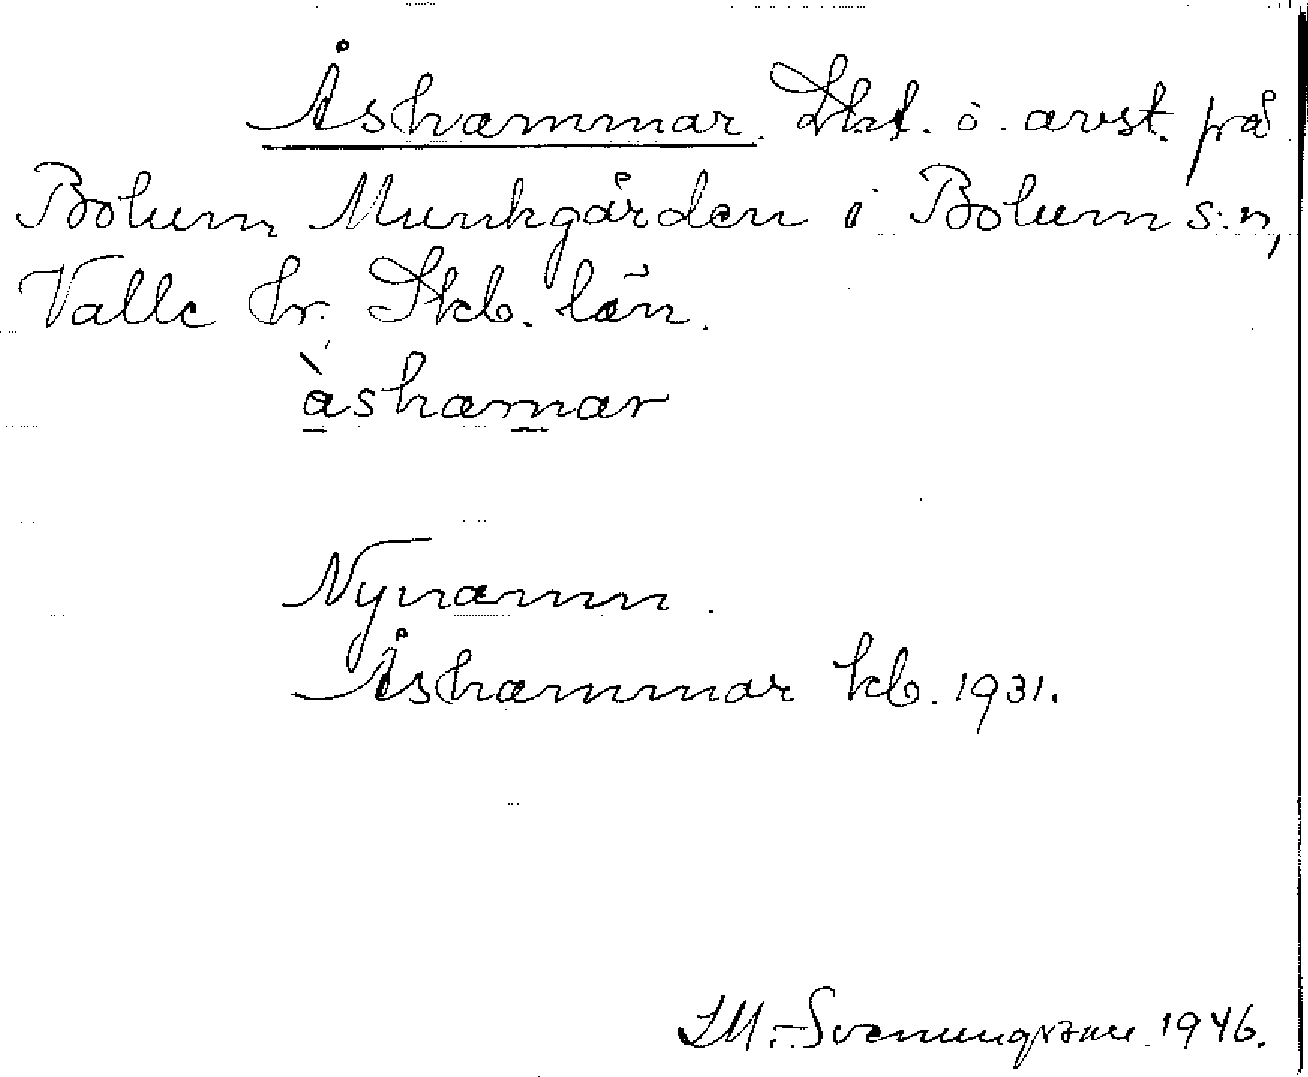 Åshammar. Skt. o. avst. på
Bolum Munkgården i Bolum s:n,
Valle hr. Skb. län.
àshamar
Nynamn.
Åshammar kb. 1931.
1946.